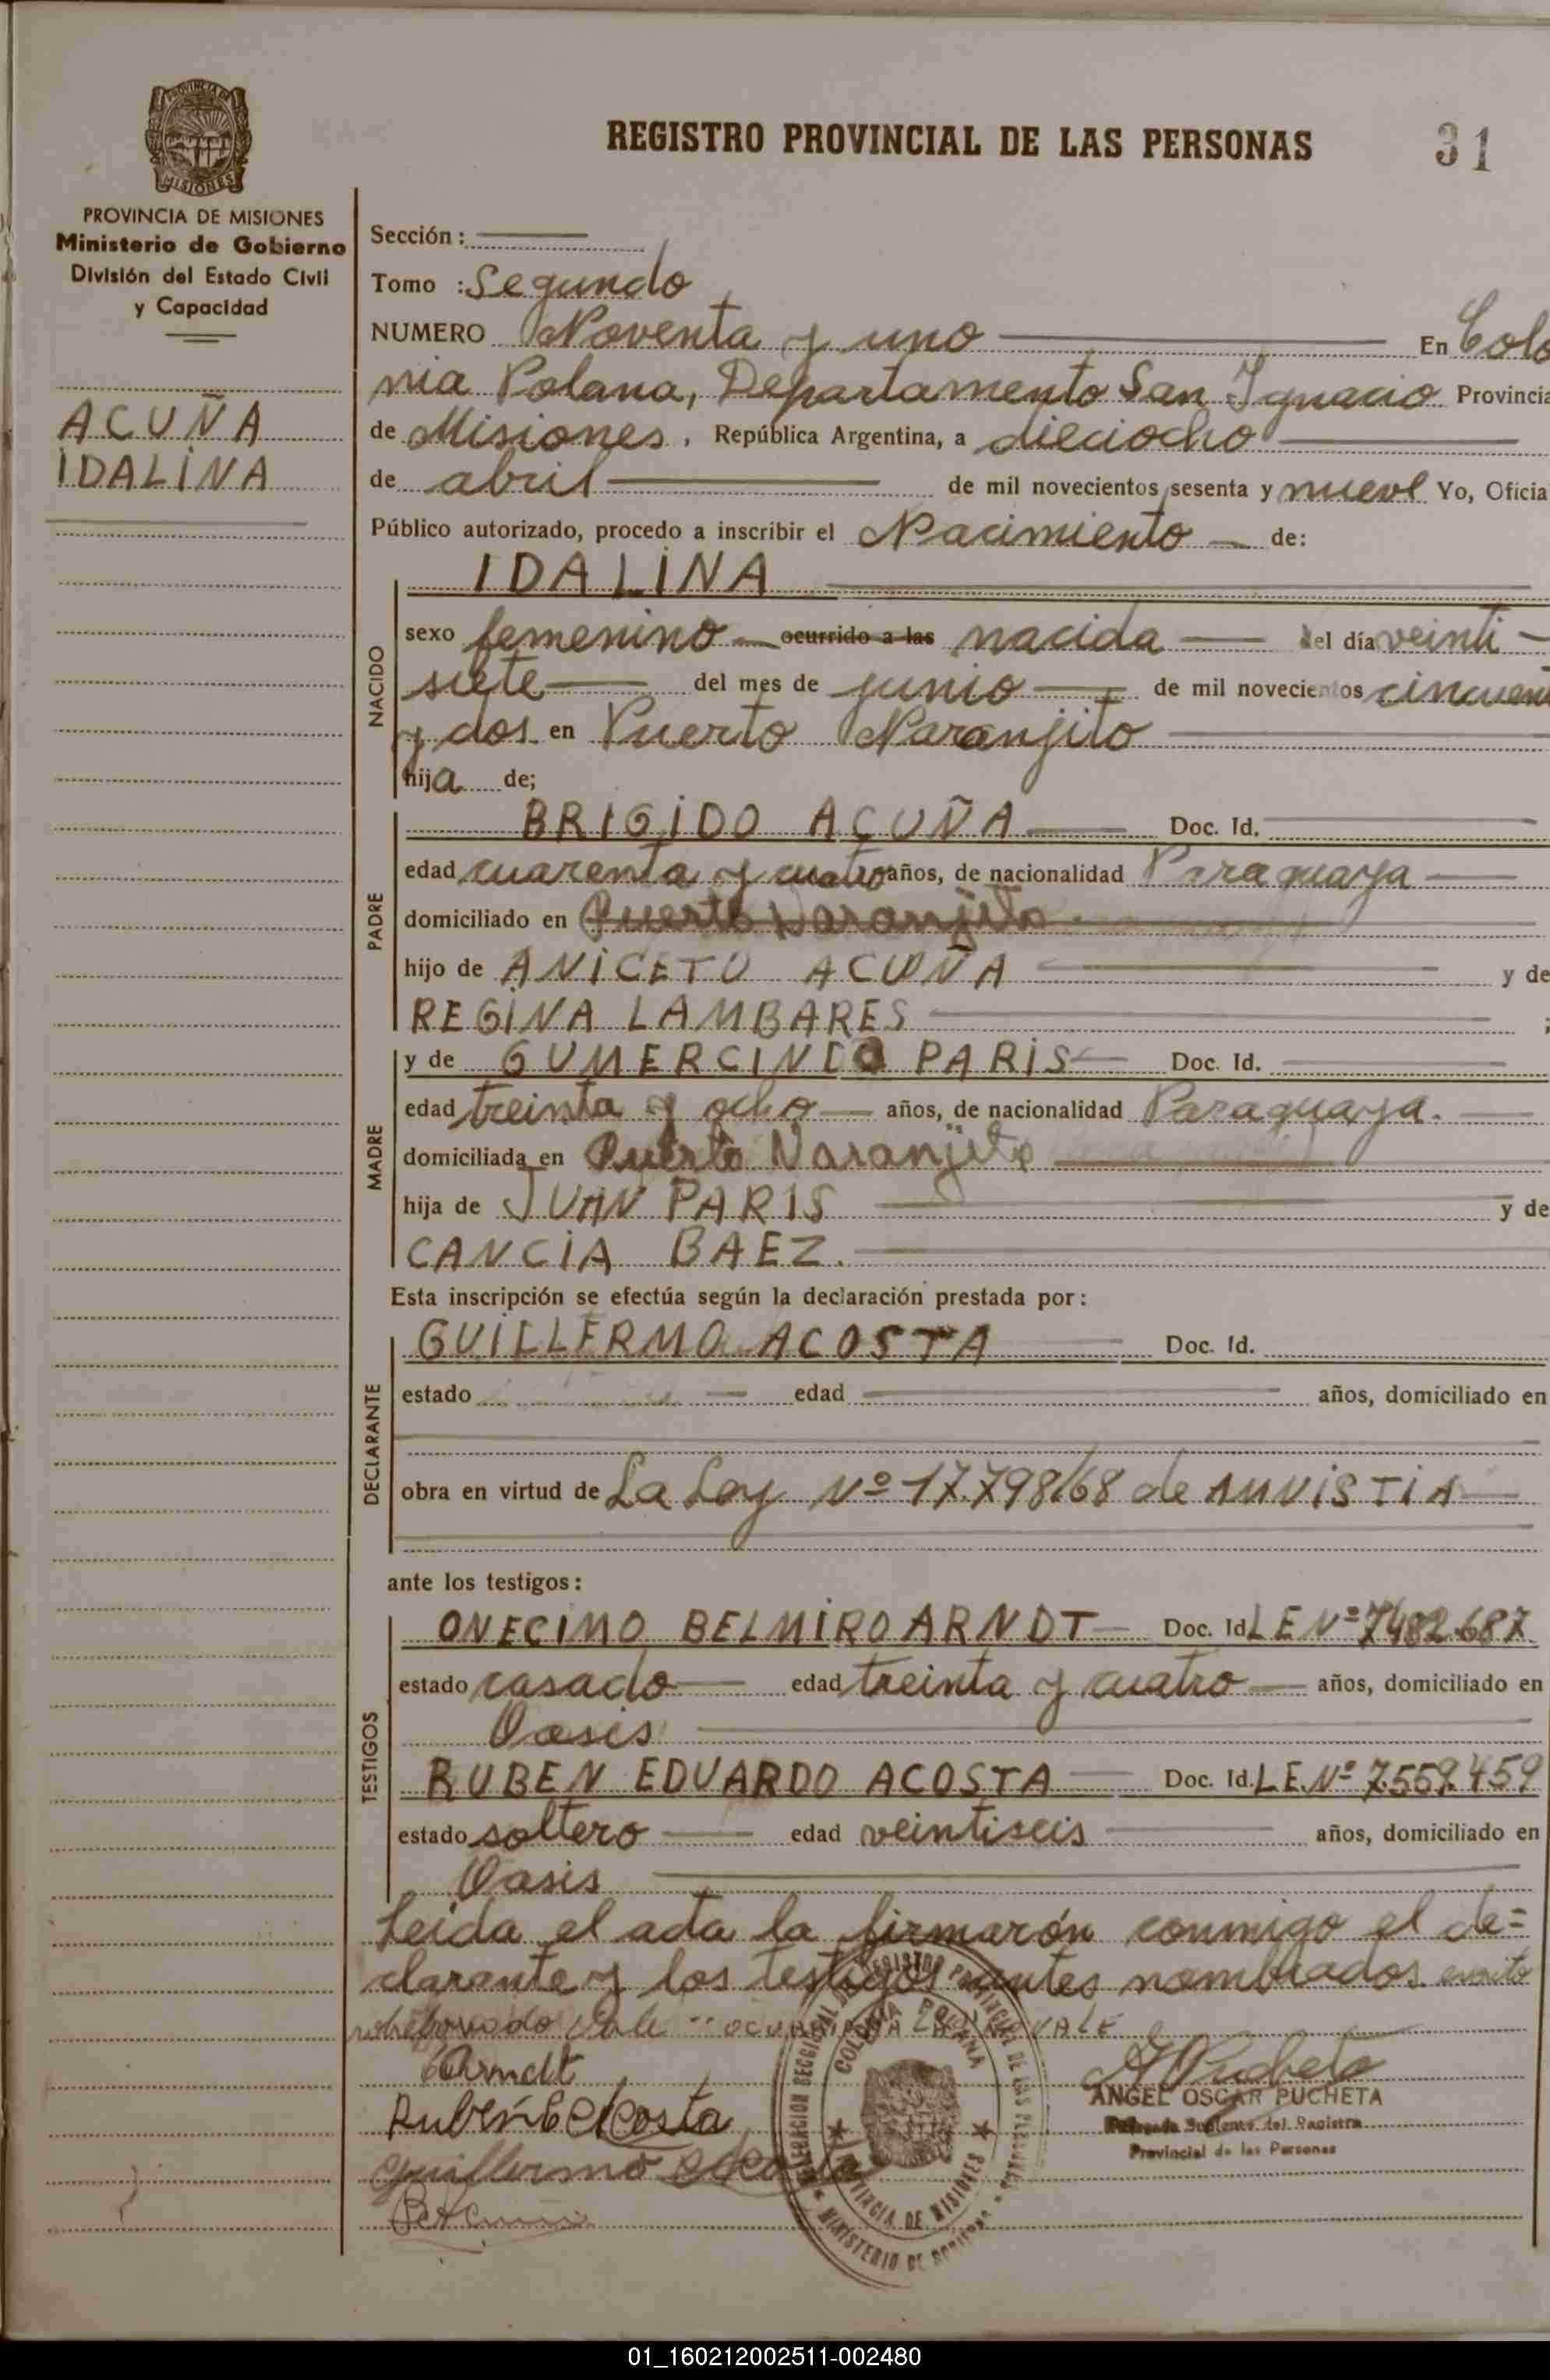 REGISTRO PROVINCIAL DE LAS PERSONAS
31
PROVINCIA DE MISIONES
PROVINCIA DE MISIONES
Ministerio de Gobierno
División del Estado Civil
y Capacidad
ACUÑA
IDALINA
Sección:
Tomo : Segundo
NUMERO Noventa y uno En Colo
nia Polana, Departamento San Ignacio Provincia
de Misiones, República Argentina, a dieciocho
de abril de mil novecientos sesenta y nueve Yo, Oficia
Público autorizado, procedo a inscribir el Nacimiento de:
NACIDO
IDALINA
sexo femenino ocurrido a las nacida del día veinti
siete del mes de junio de mil novecientos cincuen
y dos en Puerto Naranjito
hija de;
PADRE
BRIGIDO ACUÑA Doc. Id.
edad cuarenta y cuatro años, de nacionalidad Paraguaya
domiciliado en Puerto Naranjito
hijo de ANICETO ACUÑA y de
REGINA LAMBARES ;
MADRE
y de GUMERCINDO PARIS Doc. Id.
edad treinta y ocho años, de nacionalidad Paraguaya.
domiciliada en Puerto Naranjito
hija de JUAN PARIS y de
CANCIA BAEZ.
Esta inscripción se efectúa según la declaración prestada por:
DECLARANTE
GUILLERMO ACOSTA Doc. Id.
estado edad años, domiciliado en
obra en virtud de La Ley Nº 17.798/68 de AMNISTIA
ante los testigos:
TESTIGOS
ONECIMO BELMIRO ARNDT Doc. Id. LE Nº 7482.687
estado casado edad treinta y cuatro años, domiciliado en
Oasis
RUBEN EDUARDO ACOSTA Doc. Id. L.E. Nº 7.559.459
estado soltero edad veintiseis años, domiciliado en
Oasis
Leida el acta la firmarón conmigo el de=
clarante y los testigos antes nombrados
vale VALE
Arndt
Ruben E Acosta
Guillermo Acosta
ANGEL OSCAR PUCHETA
Delegado Suplente del Registro
Provincial de las Personas
COLONIA POLANA
PROVINCIA DE MISIONES
MINISTERIO DE GOBIERNO
01_160212002511-002480